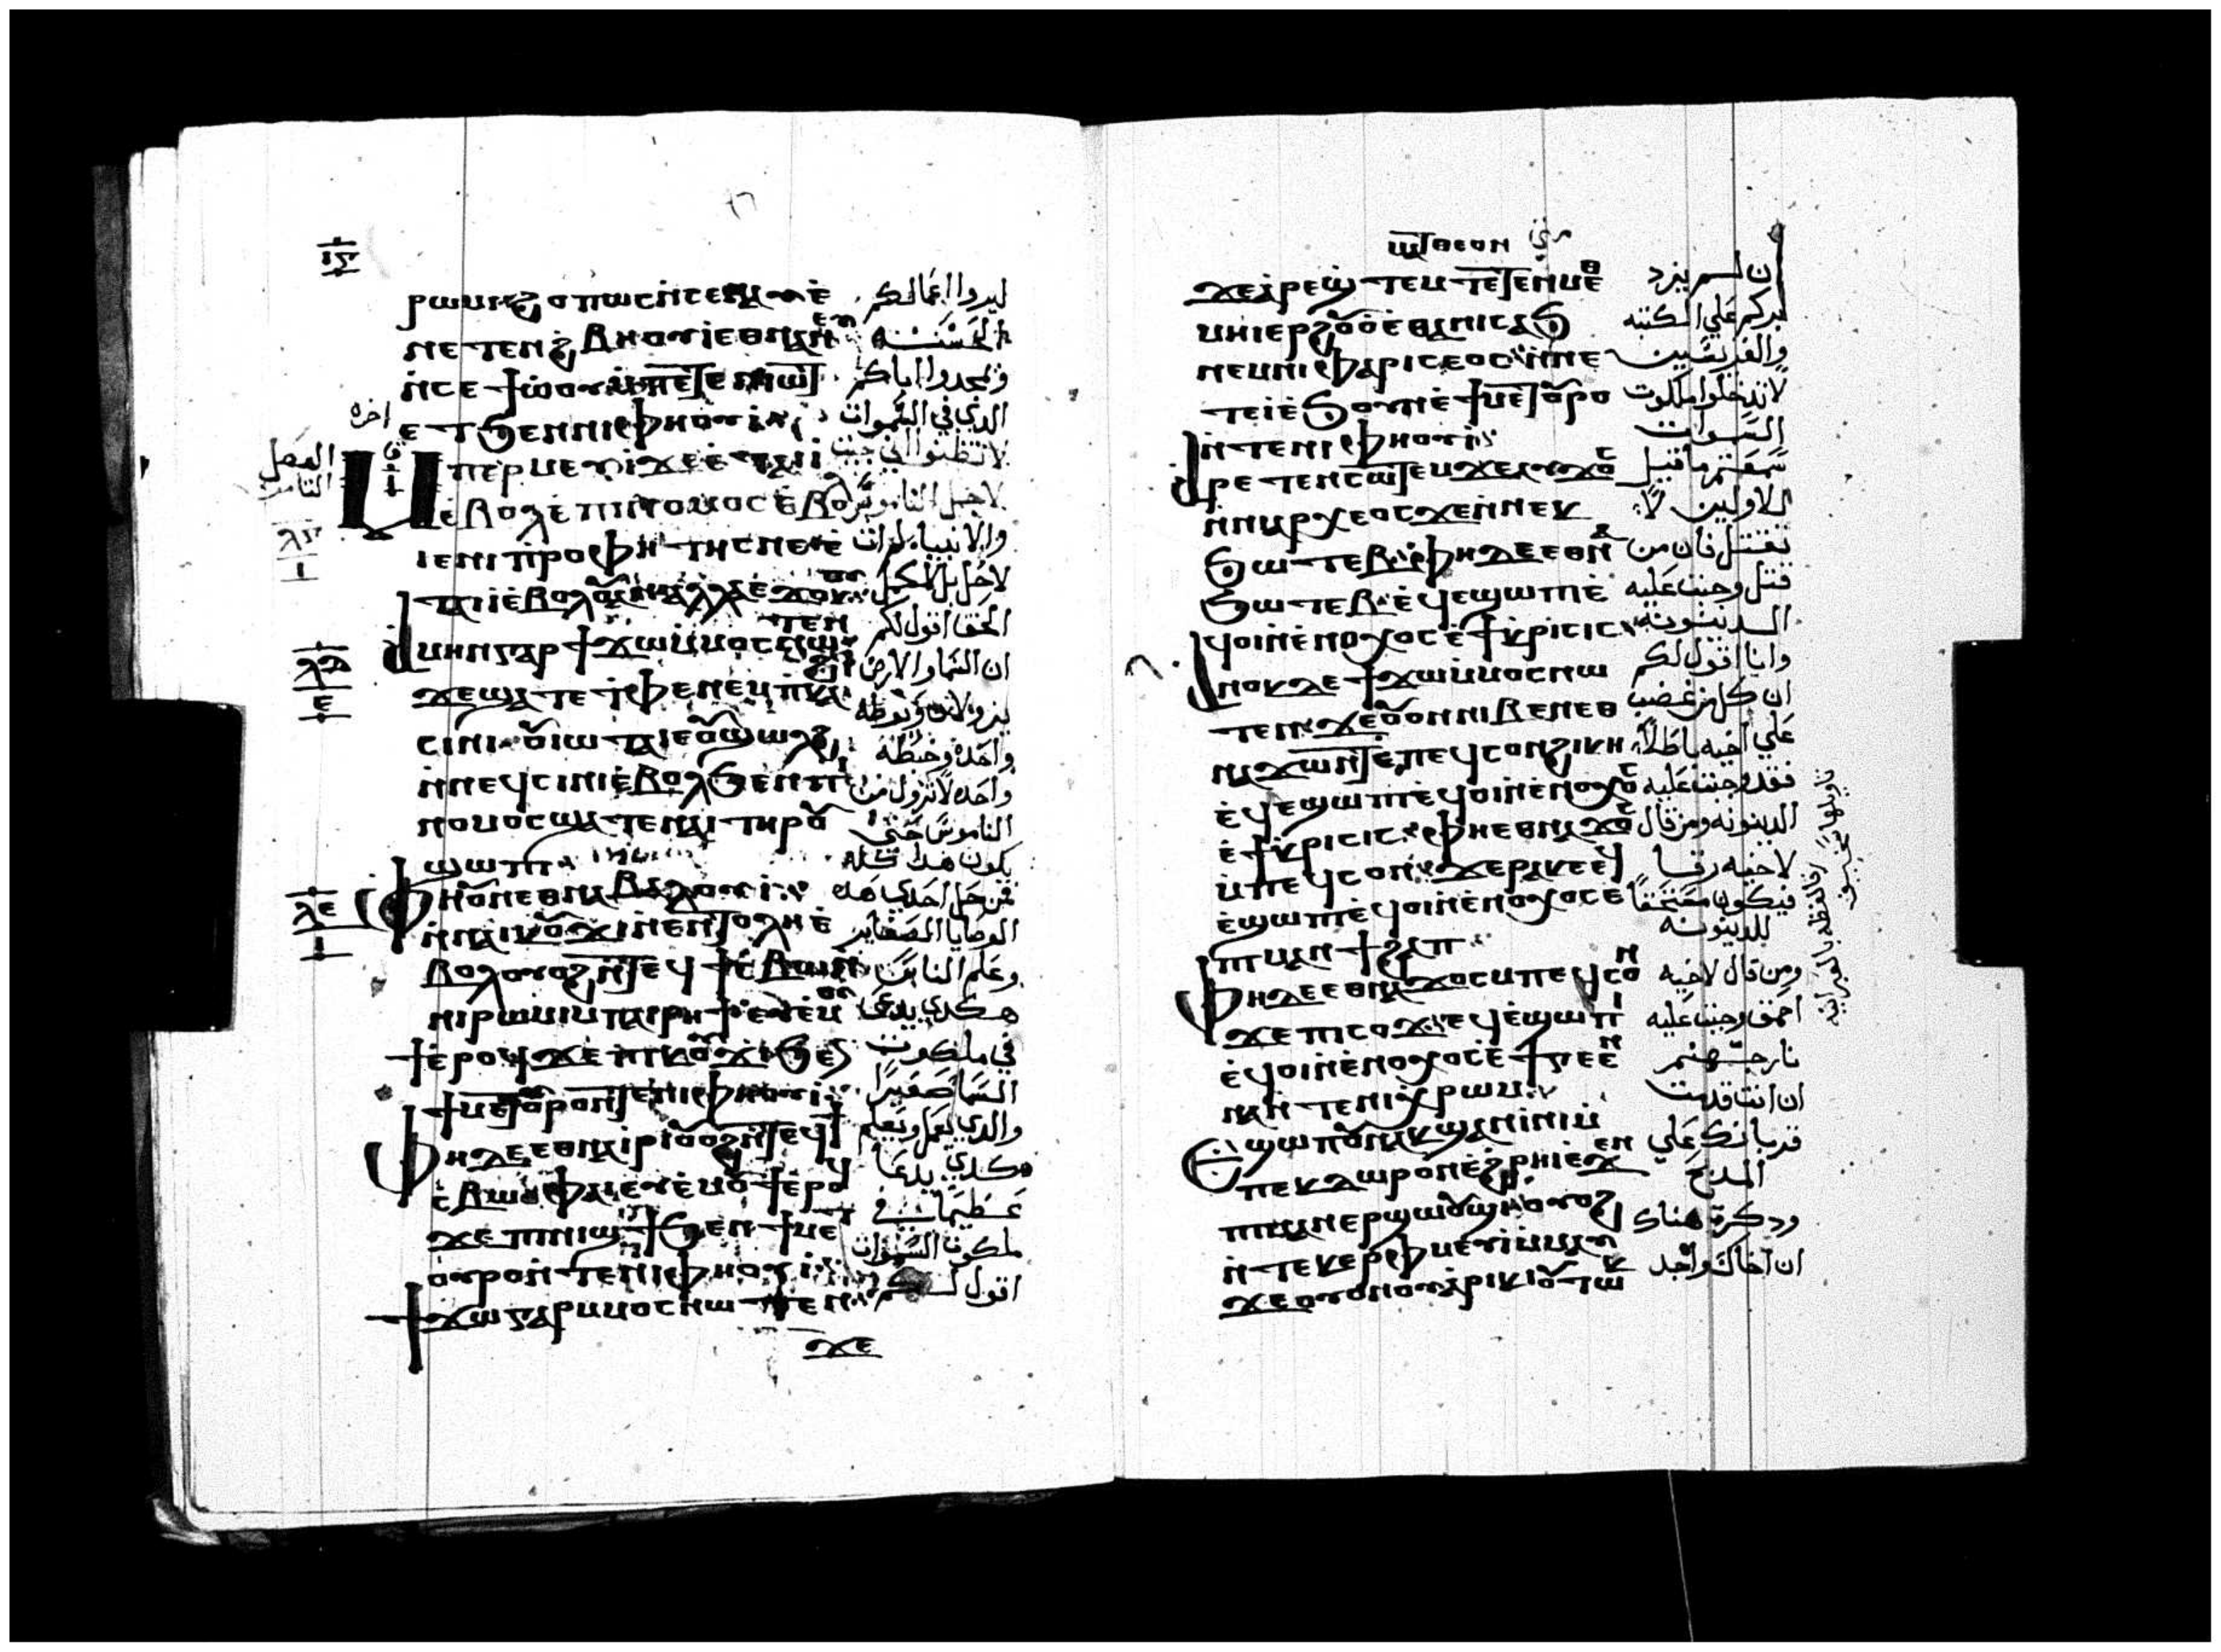 ⲓⲋ
ⲣⲱⲙⲓ ϩⲟⲡⲱⲥ ⲛ̀ⲥⲉⲛⲁⲩ ⲉ̀
ⲛⲉⲧⲉⲛϩⲃⲏⲟⲩⲓ ⲉⲑⲛⲁⲛⲉⲩ
ⲛ̀ⲥⲉϯⲱ̀ⲟⲩ ⲙ̀ⲡⲉⲧⲉⲛⲓⲱⲧ
ⲉⲧϧⲉⲛ ⲛⲓⲫⲏⲟⲩⲓ
ⲙⲡⲉⲣⲙⲉⲩⲓ ϫⲉ ⲉ̀ⲧⲁⲓⲓ̀
ⲉ̀ⲃⲟⲗ ⲉ̀ⲡⲓⲛⲟⲙⲟⲥ ⲉ̀ⲃⲟⲗ
ⲓⲉ ⲛⲓⲡⲣⲟⲫⲏⲧⲏⲥ ⲛⲉⲧⲉ̀
ⲧⲁⲓⲓ̀ ⲉ̀ⲃⲟⲗⲟⲩ ⲁⲛ ⲁⲗⲗⲁ ⲉ̀ϫⲟⲕⲟⲩ
ⲁⲙⲏⲛ ⲅⲁⲣ ϯϫⲱ ⲙ̀ⲙⲟⲥ ⲛⲱⲧⲉⲛ
ϫⲉ ϣⲁⲧⲉ ⲧ̀ⲫⲉ ⲛⲉⲙ ⲡ̀ⲕⲁϩⲓ
ⲥⲓⲛⲓ ⲟⲩⲓⲱⲧⲁ ⲓⲉ ⲟⲩϣⲱⲗϩ
ⲛ̀ⲛⲉϥⲥⲓⲛⲓ ⲉ̀ⲃⲟⲗϧⲉⲛ ⲡⲓ
ⲛⲟⲙⲟⲥ ϣⲁⲧⲉ ⲛⲁⲓ ⲧⲏⲣⲟⲩ
ϣⲱⲡⲓ
ⲫⲏ ⲟⲩⲛ ⲉⲑⲛⲁⲃⲉⲗ ⲟⲩⲓ
ⲛ̀ⲛⲁⲓⲕⲟⲩϫⲓ ⲛ̀ⲉⲛⲧⲟⲗⲏ ⲉ̀
ⲃⲟⲗ ⲟⲩⲟϩ ⲛ̀ⲧⲉϥϯⲥⲃⲱ ⲛ̀
ⲛⲓⲣⲱⲙⲓ ⲙ̀ⲡⲁⲓⲣⲏϯ ⲉⲩⲉ̀ⲙⲟⲩ
ϯ ⲉ̀ⲣⲟϥ ϫⲉ ⲡⲓⲕⲟⲩϫⲓ ϧⲉⲛ
ϯⲙⲉⲧⲟⲩⲣⲟ ⲛ̀ⲧⲉ ⲛⲓⲫⲏⲟⲩⲓ
ⲫⲏ ⲇⲉ ⲉⲑⲛⲁⲓⲣⲓ ⲟⲩⲟϩ ⲛ̀ⲧⲉϥϯ
ⲥ̀ⲃⲱ ⲫⲁⲓ ⲉⲩⲉ̀ⲙⲟⲩϯ ⲉ̀ⲣⲟϥ
ϫⲉ ⲡⲓⲛⲓϣϯ ϧⲉⲛ ϯⲙⲉⲧ
ⲟⲩⲣⲟ ⲛ̀ⲧⲉ ⲛⲓⲫⲏⲟⲩⲓ
ϯϫⲱ ⲅⲁⲣ ⲙⲙⲟⲥ ⲛⲱⲧⲉⲛ
ϫⲉ
ليروا اعمالكم
الحسنه
ويمجدوا اباكم
الذي في السموات
لا تظنوا اني جيت
لاحل الناموس
والانبياء لم ات
لاحل بل لاكمل
الحق اقول لكم
ان السما والارض
يزولان ونوطه
واحده وخطه
واحده لا تزول من
الناموس حتي
يكون هذا كله
فمن حل احدي هذه
الوصايا الصغاير
وعلم الناس
هكذي يدعي
في ملكوت
السما صغيرا
والذي يعمل ويعلم
هكذي يدعا
عظيما في
ملكوت السموات
اقول لكم
اخره
الفصل
الثامن
ⲗⲅ
ⲓ
ⲗⲇ
ⲉ
ⲗⲉ
ⲓ
ⲙⲁⲧⲑⲉⲟⲛ
ϫⲉ ⲁ̀ⲣⲉϣⲧⲉⲙ ⲧⲉⲧⲉⲛⲙⲉⲑ
ⲙⲏⲓ ⲉⲣϩⲟⲩⲟ̀ ⲉ̀ⲑⲁ ⲛⲓⲥⲁϧ
ⲛⲉⲙ ⲛⲓⲫⲁⲣⲓⲥⲉⲟⲥ ⲛ̀ⲛⲉ
ⲧⲉⲛⲓ̀ ⲉ̀ϧⲟⲩⲛ ⲉ̀ϯⲙⲉⲧⲟⲩⲣⲟ
ⲛ̀ⲧⲉ ⲛⲓⲫⲏⲟⲩⲓ
ⲁⲣⲉⲧⲉⲛⲥⲱⲧⲉⲙ ϫⲉ ⲁⲩϫⲟⲥ
ⲛ̀ⲛⲓⲁⲣⲭⲉⲟⲥ ϫⲉ ⲛ̀ⲛⲉⲕ
ϧⲱⲧⲉⲃ ⲫⲏ ⲇⲉ ⲉⲑⲛⲁ
ϧⲱⲧⲉⲃ ⲉ̀ϥⲉϣⲱⲡⲓ ⲉ̀
ϥⲟⲓ ⲛ̀ⲉⲛⲟⲭⲟⲥ ⲉ̀ϯⲕⲣⲓⲥⲓⲥ
ⲁⲛⲟⲕ ⲇⲉ ϯϫⲱ ⲙ̀ⲙⲟⲥ ⲛⲱ
ⲧⲉⲛ ϫⲉ ⲟⲩⲟⲛ ⲛⲓⲃⲉⲛ ⲉⲑ
ⲛⲁϫⲱⲛⲧ ⲉ̀ⲡⲉϥⲥⲟⲛ ϩⲓⲕⲏ
ⲉ̀ϥⲉϣⲱⲡⲓ ⲉ̀ϥⲟⲓ ⲛ̀ⲉⲛⲟⲭⲟⲥ
ⲉ̀ϯⲕⲣⲓⲥⲓⲥ ⲫⲏ ⲉⲑⲛⲁϫⲟⲥ
ⲙ̀ⲡⲉϥⲥⲟⲛ ϫⲉ ⲣⲁⲕⲁ ⲉϥ
ⲉ̀ϣⲱⲡⲓ ⲉ̀ϥⲟⲓ ⲛ̀ⲉⲛⲟⲭⲟⲥ ⲉ̀
ⲡⲓⲙⲁⲛϯϩⲁⲡ
ⲫⲏ ⲇⲉ ⲉⲑⲛⲁϫⲟⲥ ⲙⲡⲉϥⲥⲟⲛ
ϫⲉ ⲡⲓⲥⲟϫ ⲉϥⲉ̀ϣⲱⲡⲓ
ⲉ̀ϥⲟⲓ ⲛ̀ⲉⲛⲟⲭⲟⲥ ⲉ̀ϯⲅⲉⲉⲛ
ⲛⲁ ⲛ̀ⲧⲉ ⲡⲓⲭⲣⲱⲙ
ⲉϣⲱⲡ ⲟⲩⲛ ⲁⲕϣⲁⲛⲓⲛⲓ ⲙ̀
ⲡⲉⲕⲇⲱⲣⲟⲛ ⲉ̀ϩⲣⲏⲓ ⲉϫⲉⲛ
ⲡⲓⲙⲁⲛⲉⲣϣⲱⲟⲩϣⲓ ⲟⲩⲟϩ
ⲛ̀ⲧⲉⲕⲉⲣⲫⲙⲉⲩⲓ ⲙ̀ⲙⲁⲩ
ϫⲉ ⲟⲩⲟⲛ ⲟⲩⲁⲣⲓⲕⲓ ⲟⲩⲧⲱⲕ
ان لم يزد
بركم علي الكتبه
والفريسين
لا تدخلوا ملكوت
السموات
سمعتم ما قيل
للاولين لا
تقتل فان من
قتل وجبت عليه
الدينونه
وانا اقول لكم
ان كل من غضب
علي اخيه باطلا
فقد وجبت عليه
الدينونه ومن قال
لاخيه رقا
فيكون مستحقا
للدينونه
ومن قال لاخيه
احمق وجبت عليه
نار جهنم
ان انت قدمت
قربانك علي
المذبح
وذكرت هناك
ان اخاك واجد